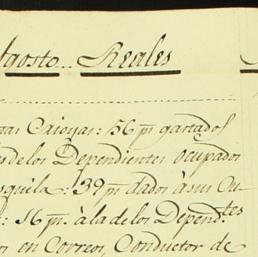 Agosto.. Reales
Criollas: 56 p.^s gastados
de los Dependientes ocupados
esquila: 39 p.^s dados à sus Cu-
: 16 p.^s à la de los Depend.^tes
en Correos, Conductor de